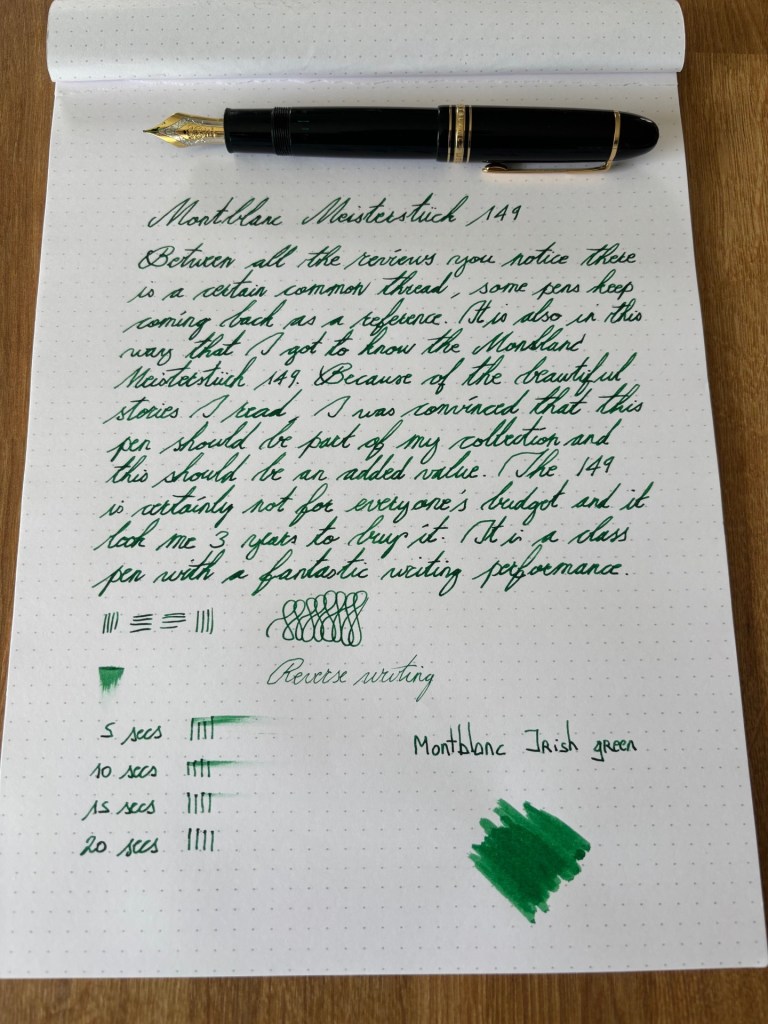 Montblanc Meisterstück 149
Between all the reviews you notice there
is a certain common thread, some pens keep
coming back as a reference. It is also in this
way that I got to know the Monblanc
Meisterstück 149. Because of the beautiful
stories I read, I was convinced that this
pen should be part of my collection and
this should be an added value. The 149
is certainly not for everyone's budget and it
took me 3 years to buy it. It is a class
pen with a fantastic writing performance.
Reverse writing
5 secs
10 secs
15 secs
20 secs
Montblanc Irish green